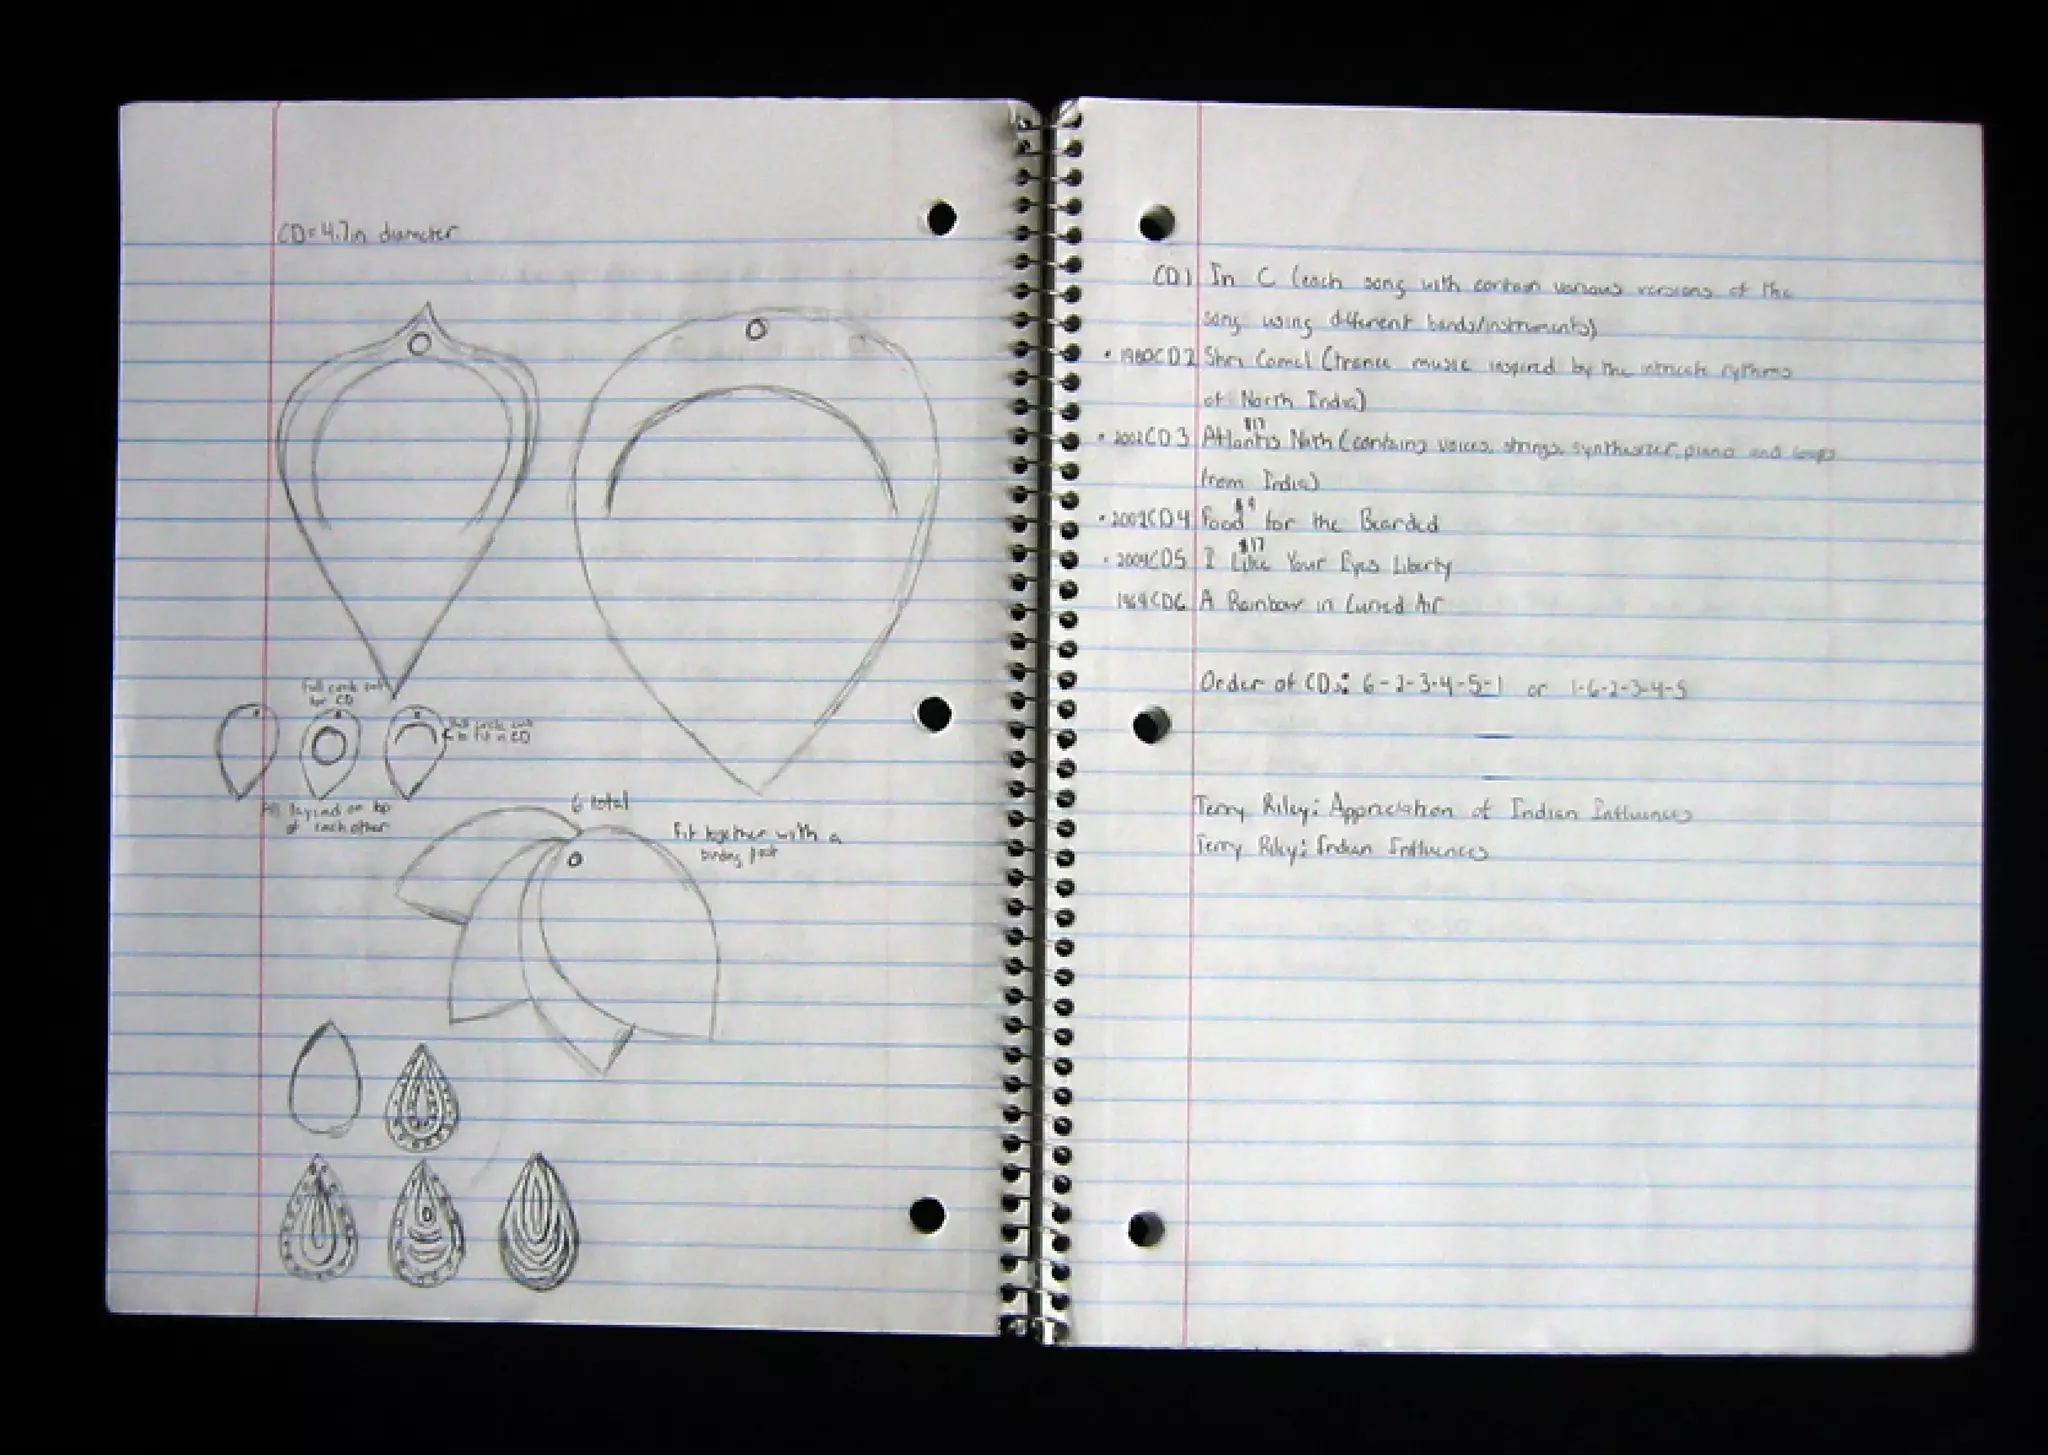 CD = 4.7in diameter
Full circle cut
for CD
Half circle cut
to fit in CD
All layered on top
of each other
6 total
Fit together with a
binding post
CD 1 In C (each song with contain various versions of the
song using different bands/instruments)
• 1980 CD 2 Shri Camel (trance music inspired by the intricate rythms
of North India)
$17
• 2002 CD 3 Atlantis Nath (contains voices, strings, synthesizer, piano and loops
from India)
$9
• 2002 CD 4 Food for the Bearded
$17
• 2004 CD5 I Like Your Eyes Liberty
1969 CD6 A Rainbow in Curved Air
Order of CDs: 6-2-3-4-5-1 or 1-6-2-3-4-5
Terry Riley: Appreciation of Indian Influences
Terry Riley: Indian Influences